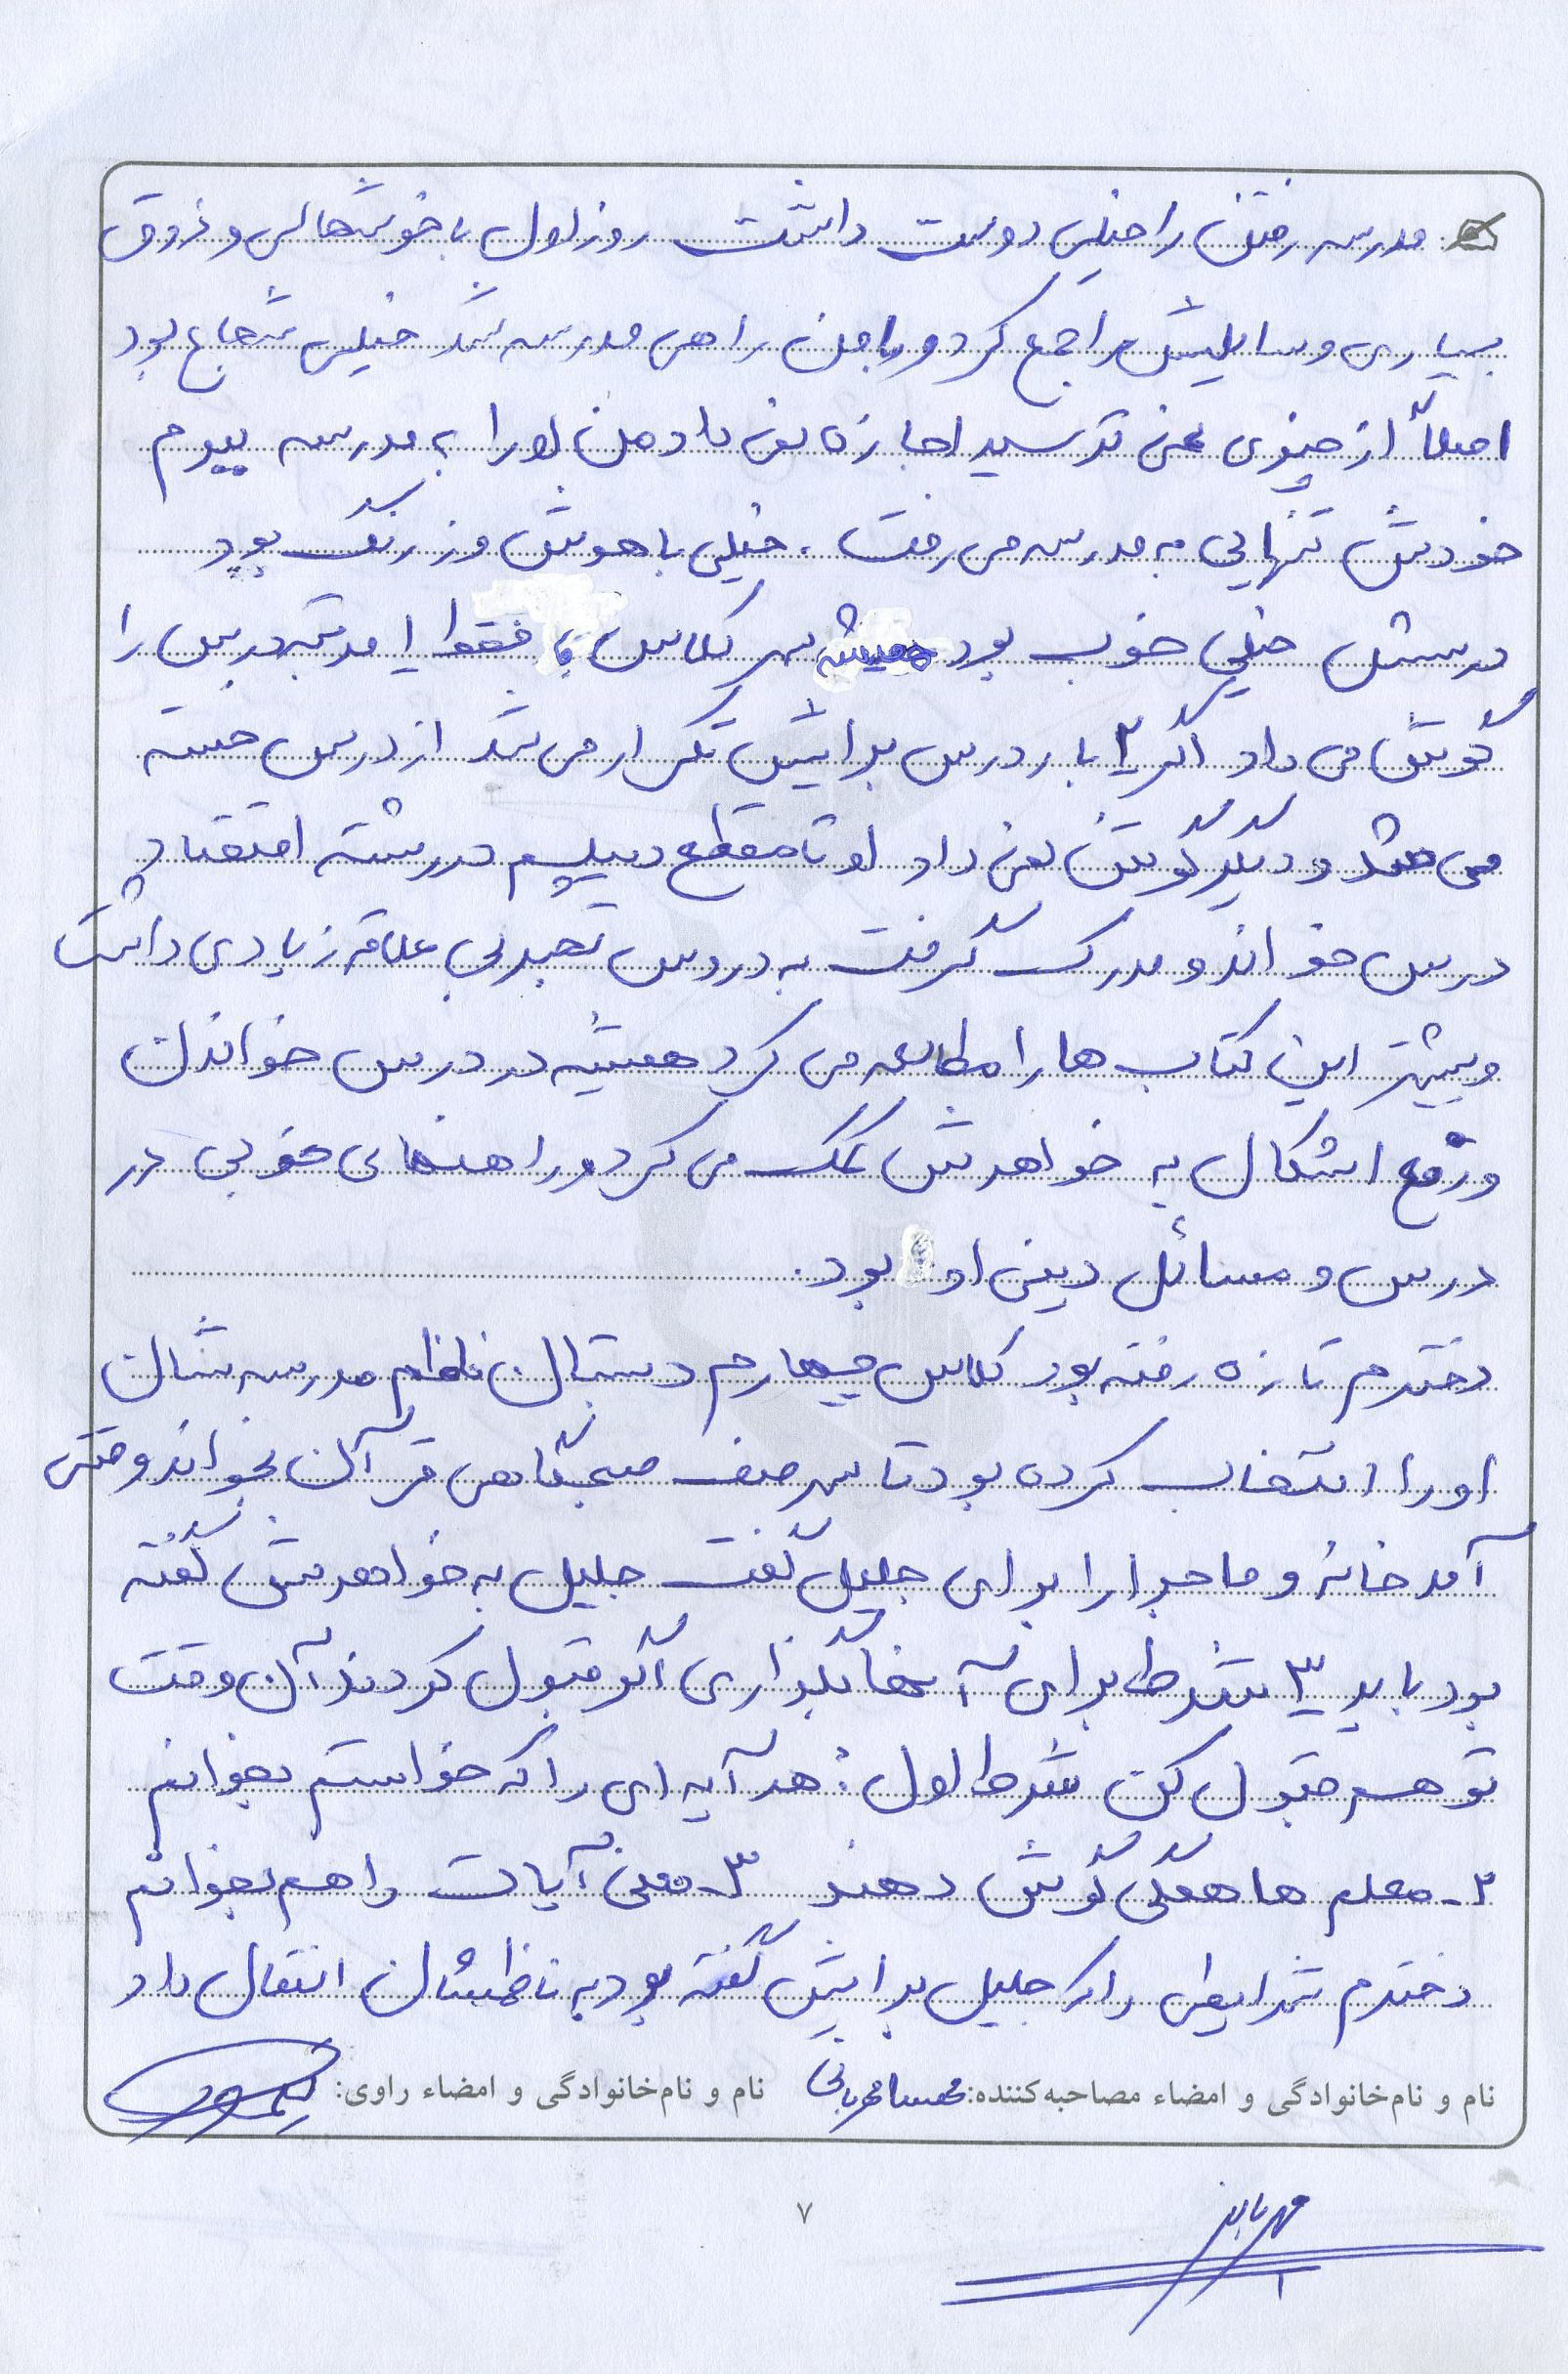 مدرسه رفتن را خیلی دوست داشت روز اول با خوشحالی و ذوق
بسیاری وسایلیش را جمع کرد و با من راهی مدرسه شد خیلی شجاع بود
اصلاً از چیزی نمی ترسید اجازه نمی داد من او را به مدرسه ببرم
خودش تنهایی به مدرسه می رفت . خیلی باهوش و زرنگ بود
درسش خیلی خوب بود همیشه سر کلاس فقط ۱ مرتبه درس را
گوش می داد اگر ۲ بار درس برایش تکرار می شد از درس خسته
می شد و دیگر گوش نمی داد او تا مقطع دیپلم در رشته اقتصاد
درس خواند و مدرک گرفت به دروس تجربی علاقه زیادی داشت
و بیشتر این کتاب ها را مطالعه می کرد همیشه در درس خواندن
و رفع اشکال به خواهرش کمک می کرد و راهنمای خوبی در
درس و مسائل دینی او بود.
دخترم تازه رفته بود کلاس چهارم دبستان ناظم مدرسه شان
او را انتخاب کرده بود تا سر صف صبحگاهی قرآن بخواند وقتی
آمد خانه و ماجرا را برای جلیل گفت جلیل به خواهرش گفته
بود باید ۳ شرط برای آنها بگذاری اگر قبول کردند آن وقت
تو هم قبول کن شرط اول : هر آیه ای را که خواستم بخوانم
۲- معلم ها همگی گوش دهند ۳- معنی آیات را هم بخوانم
دخترم شرایطی را که جلیل برایش گفته بود به ناظمشان انتقال داد
نام و نام‌خانوادگی و امضاء مصاحبه‌کننده: مهربانی نام و نام‌خانوادگی و امضاء راوی:
۷